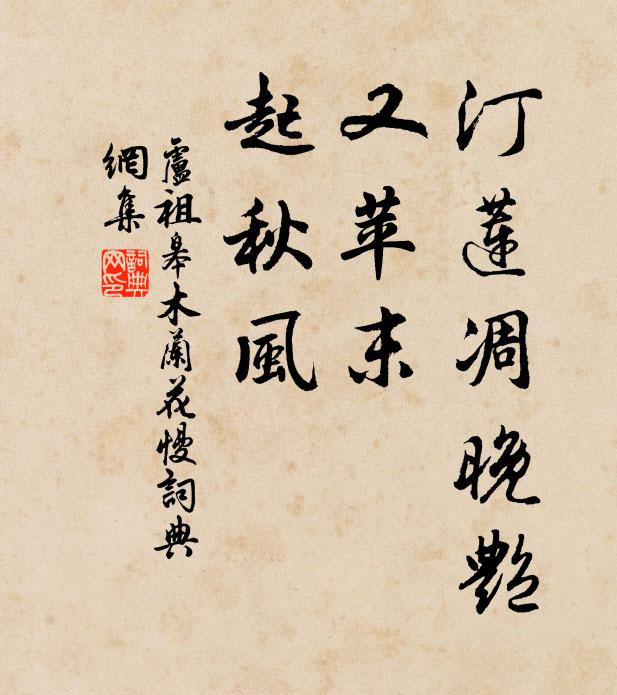 汀蓮凋晚艷
又苹末
起秋風
盧祖皋木蘭花慢詞典
網集
詞典
网印